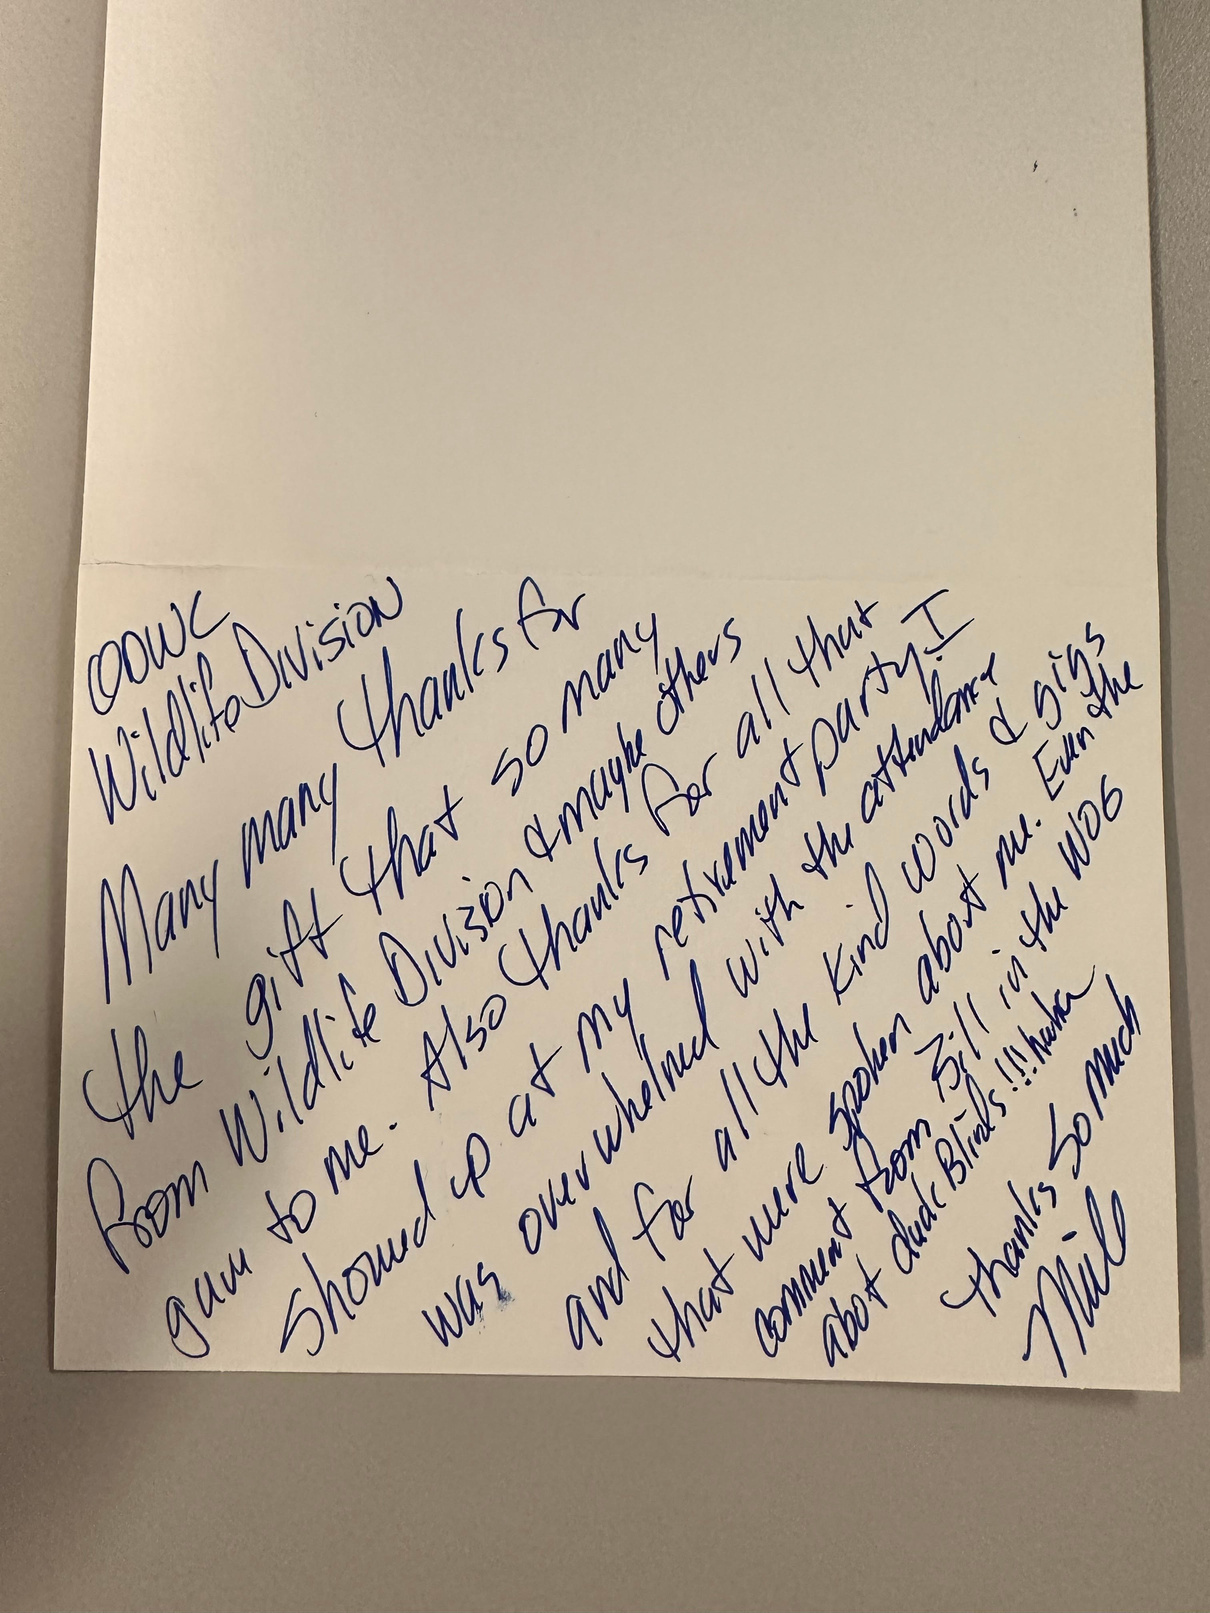 ODWC
Wildlife Division
Many many thanks for
the gift that so many
from Wildlife Division & maybe others
gave to me. Also thanks for all that
showed up at my retirement party. I
was overwhelmed with the attendance
and for all the kind words &
that were spoken about me. Even the
comment from Bill in the WDG
abot duck Blinds!!! haha
Thanks so much